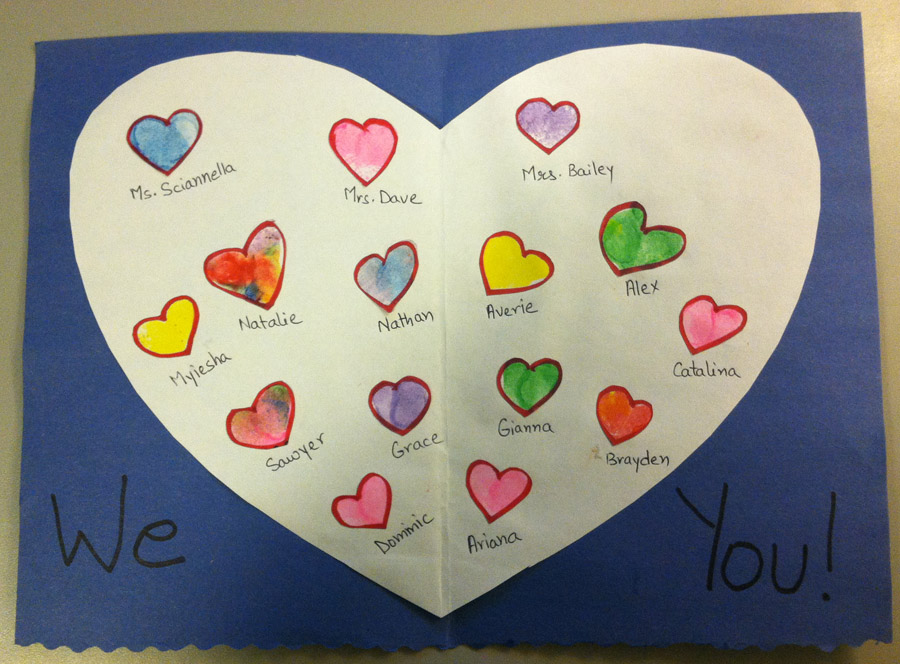 Ms. Sciannella
Mrs. Dave
Mrs. Bailey
Natalie
Nathan
Averie
Alex
Myiesha
Catalina
Sawyer
Grace
Gianna
Brayden
Dominic
Ariana
We
You!